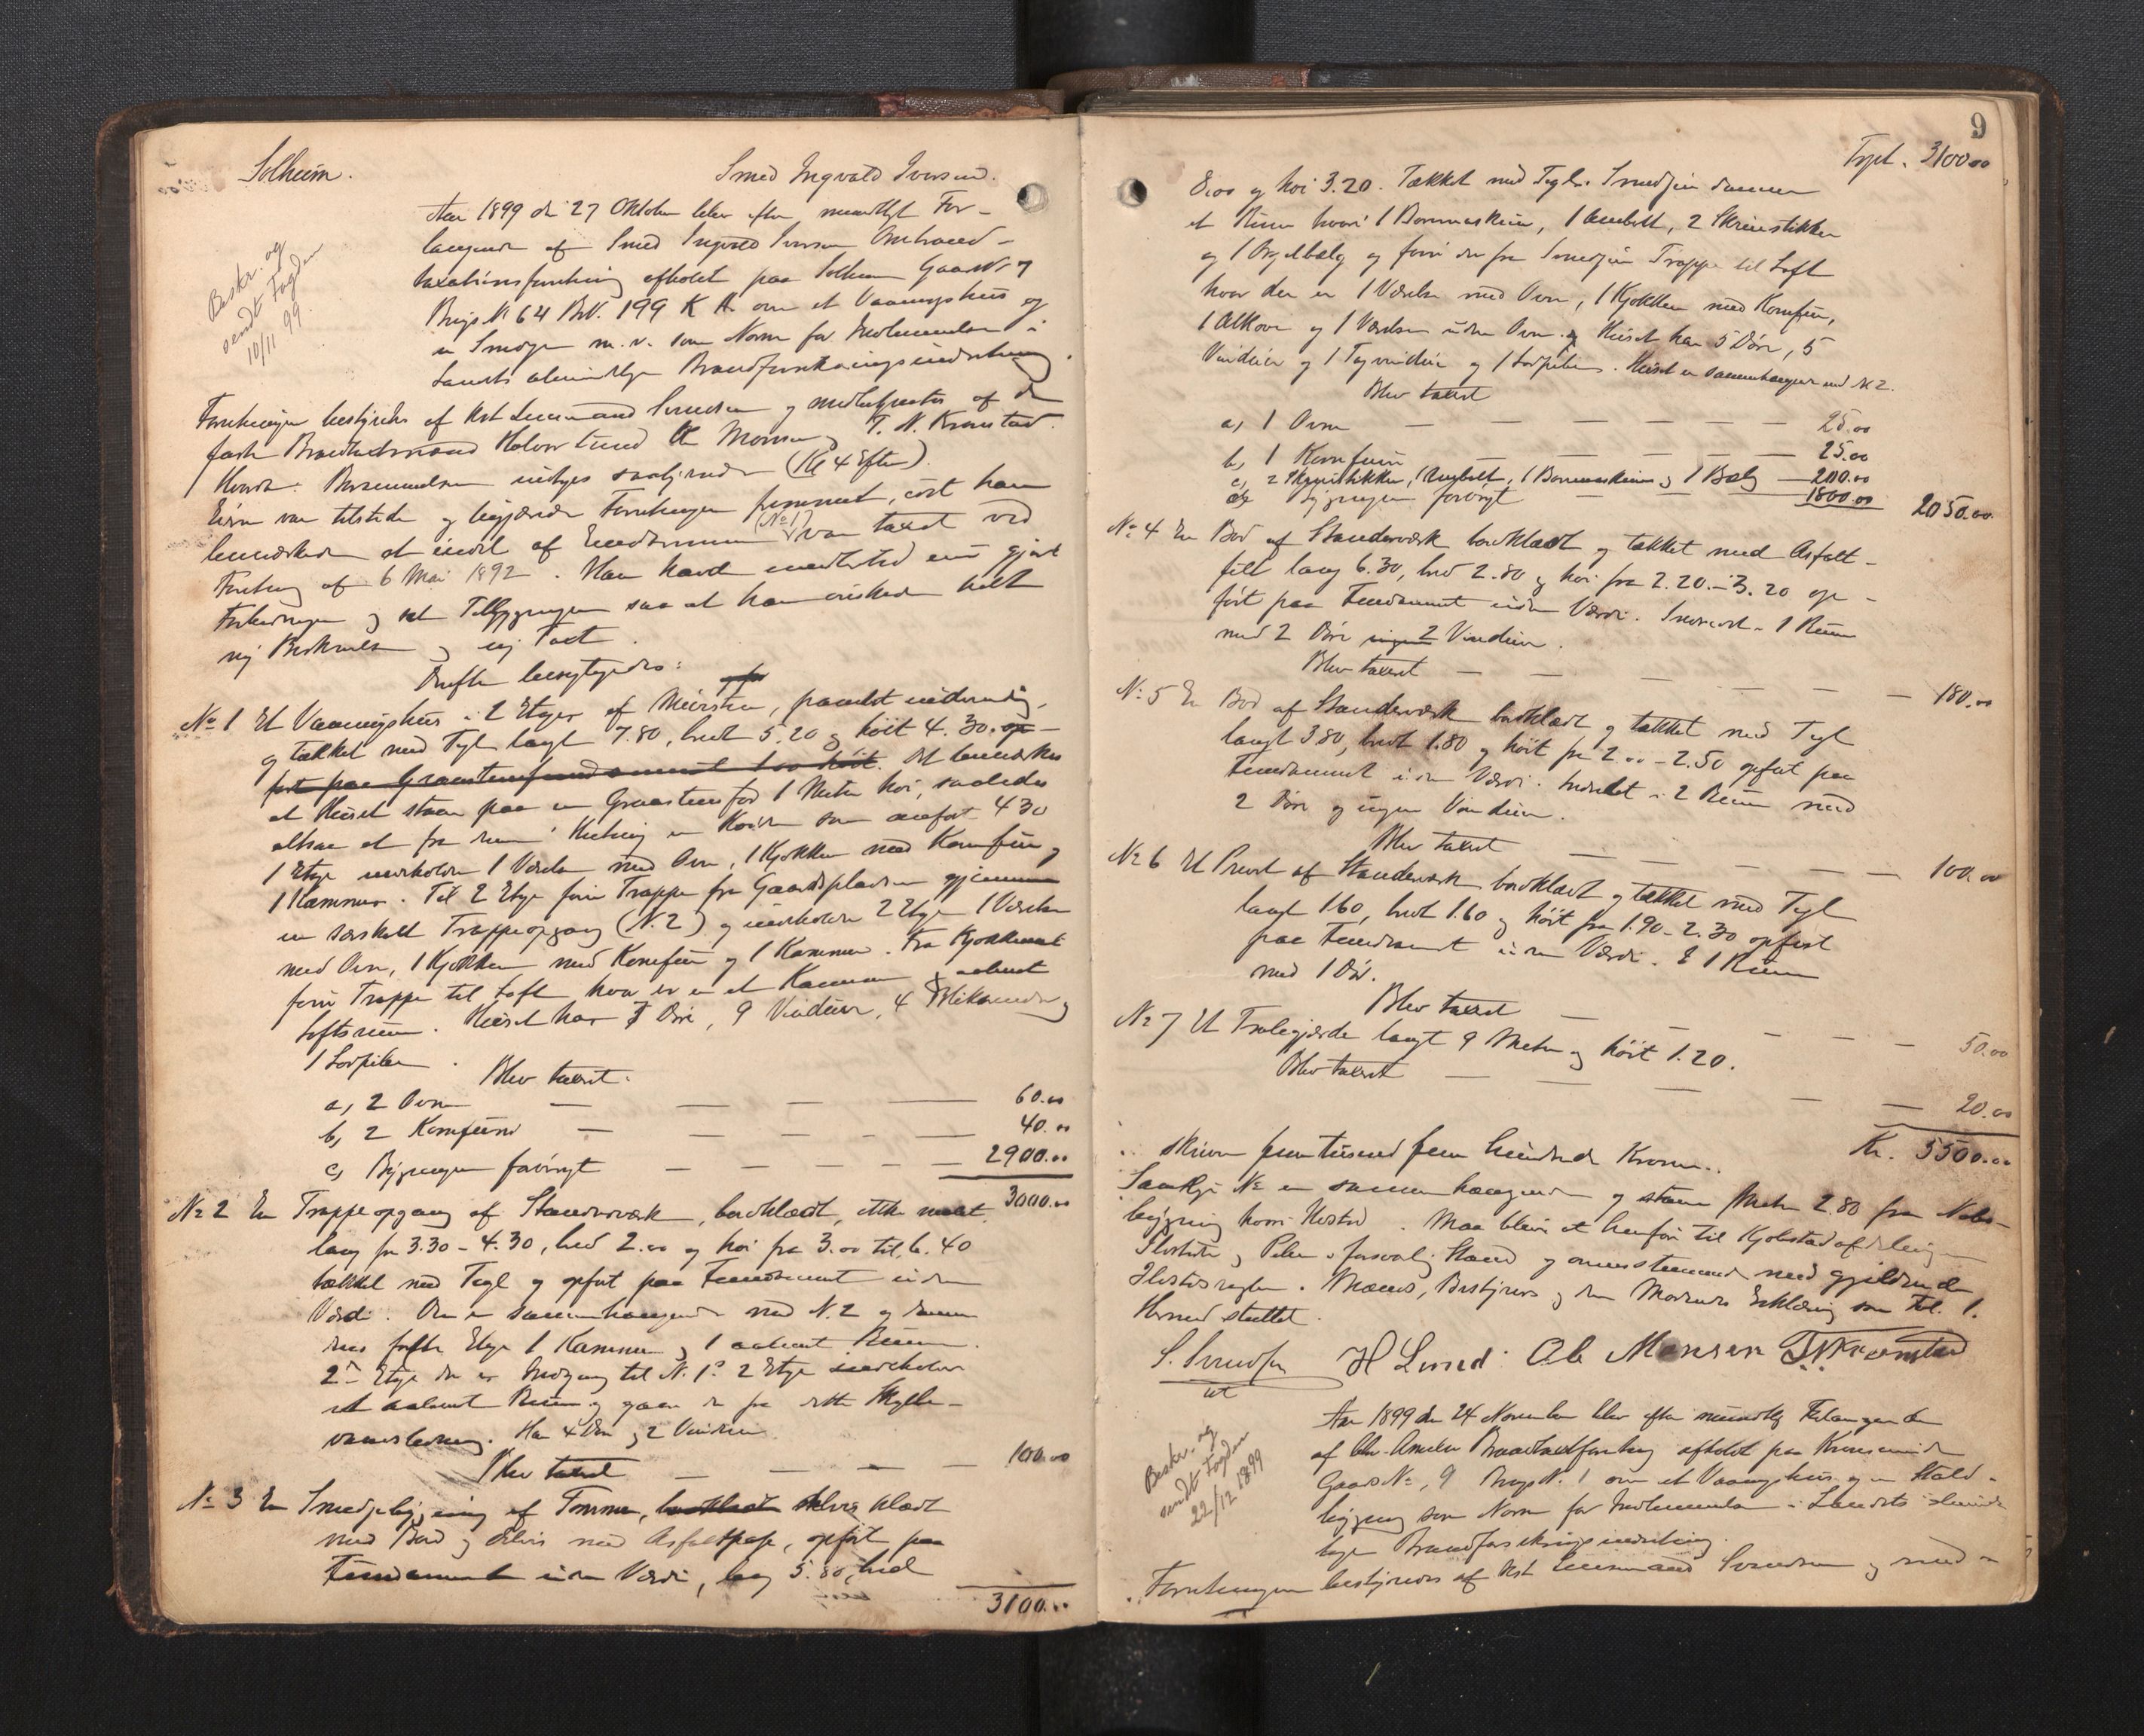 Solheim.
Smed Ingvald Iversen.
Beskr. og
sendt Fogden
10/11 99.
Aar 1899 den 27 Oktober blev efter mundtligt For-
langende af Smed Ingvald Iversen Ombrand-
taxationsforretning afholdt paa Solheim Gaards N. 7
Brugs N. 64 BN. 199 K A. om et Vaaningshus og
en Smedje m. v. som Norm for Indlemmelse i
Landets almindelige Brandforsikringsindretning.
Forretningen bestyredes af Kst Lensmand Svendsen og medbetjentes af de
faste Brandtaxtmænd Halvor Lund Ole Monsen og T. N. Kronstad.
Hvorda: Dokumentation indtoges saalydende (Kl 4 Eftm).
Eieren var tilstede og begjærede Forretningen fremmet, idet han
bemærkede at endel af Eiendommen (No 1) var taxeret ved
Forretning af 6 Mai 1892. Han havde imidlertid nu gjort
Forbedringer og Tilbygninger saa at han ønskede helt
ny Beskrivelse og ny Taxt.
Derefter besigtigedes:
No 1 Et Vaaningshus i 2 Etager af Mursten, panelet indvendig,
og tækket med Tegl langt 7.80, bredt 5.20 og høit 4.30. op-
ført paa Graastensfundament 1.00 høit. Det bemærkes
at Huset staar paa en Graastensfod 1 Meter høi, saaledes
altsaa at fra denne i Huset er Høiden som anført 4.30
1 Etage indeholder 1 Værelse med Ovn, 1 Kjøkken med Komfur og
1 Kammer. Til 2 Etage fører Trappe fra Gaardspladsen gjennem
en særskilt Trappeopgang (N. 2) og indeholder 2 Etage 1 Værelse
med Ovn, 1 Kjøkken med Komfur og 1 Kammer. Fra Kjøkkenet
fører Trappe til Loft hvor der er et Kammer & aabent
Loftsrum. Huset har 7 Døre, 9 Vinduer, 4 Blikrender og
1 Sodpibe.
Blev taxeret:
a, 2 Ovne — — — — 60.00
b, 2 Komfurer — — — — 40.00
c, Bygningen forøvrigt — — — — 2900.00
3000.00
No 2 En Trappeopgang af Standerværk, bordklædt, ikke malt,
lang fra 3.30 - 4.30, bred 2.00 og høi fra 3.00 til 6.40
tækket med Tegl og opført paa Fundament uden
Værdi. Den er sammenhængende med N. 2 og danner
dens første Etage 1 Kammer og 1 aabent Rum.
2den Etage der er Indgang til N. 1s 2 Etage indeholder
et aabent Rum og gaar der fra dette Skylle-
vandsledning. Har 4 Døre og 2 Vinduer
Blev taxeret — — — — 100.00
No 3 En Smedjebygning af Tømmer, bordklædt delvis klædt
med Bord og delvis med Asfaltpap, opført paa
Fundament uden Værdi, lang 5.80, bred
3100.00
9
Trpt. 3100.00
8.00 og høi 3.20. Tækket med Tegl. Smedjen danner
et Rum hvori 1 Boremaskine, 1 Ambolt, 2 Skruestikker
og 1 Orgelbælg og fører der fra Smedjen Trappe til Loft
hvor der er 1 Værelse med Ovn, 1 Kjøkken med Komfur,
1 Alkove og 1 Værelse uden Ovn. Huset har 5 Døre, 5
Vinduer og 1 Tagvindu og 1 Sodpibe. Huset er sammenhængende med N 2.
Blev taxeret
a, 1 Ovn — — — — — — 25.00
b, 1 Komfur — — — — 25.00
c, 2 Skruestikker, 1 Ambolt, 1 Boremaskine og 1 Bælg — 200.00
d, Bygningen forøvrigt — — — 1800.00 2050.00
No 4 En Bod af Standerværk bordklædt og tækket med Asfalt-
filt lang 6.30, bred 2.80 og høi fra 2.20 - 3.20 op-
ført paa Fundament uden Værdi. Indredet i 1 Rum
med 2 Døre ingen 2 Vinduer.
Blev taxeret — — — — — — 180.00
No 5 En Bod af Standerværk bordklædt og tækket med Tegl
langt 3.80, bredt 1.80 og høit fra 2.00 - 2.50 opført paa
Fundament uden Værdi. Inddelt i 2 Rum med
2 Døre og ingen Vinduer.
Blev taxeret — — — — — 100.00
No 6 Et Privet af Standerværk bordklædt og tækket med Tegl
langt 1.60, bredt 1.60 og høit fra 1.90 - 2.30 opført
paa Fundament uden Værdi. I 1 Rum
med 1 Dør.
Blev taxeret — — — — — 50.00
No 7 Et Stakegjærde langt 9 Meter og høit 1.20.
Blev taxeret — — — — — 20.00
skriver fem tusend fem hundrede Kroner. Kr. 5500.00
Samtlige No er sammenhængende og staar Meter 2.80 fra Nabo-
bygning hvori Ildsted. Maa blive at henføre til Kjøbstadafdelingen
Ildsteder og Piber i forsvarlig Stand og overensstemmende med gjældende
Ildstedsregler. Mænds, Bestyrers og den Mødendes Erklæring som Fol. 1.
Hermed sluttet.
S. Svendsen H Lund Ole Monsen T. N. Kronstad
cst
Beskr. og
sendt Fogden
22/12 1899
Aar 1899 den 24 November blev efter mundtlig Forlangende
af Chr. Amble Brandtaxtforretning afholdt paa Kronsminde
Gaards No, 9 Brugs N. 1 om et Vaaningshus og en Stald-
bygning som Norm for Indlemmelse i Landets alminde-
lige Brandforsikringsindretning.
Forretningen bestyredes af Kst Lensmand Svendsen og med-